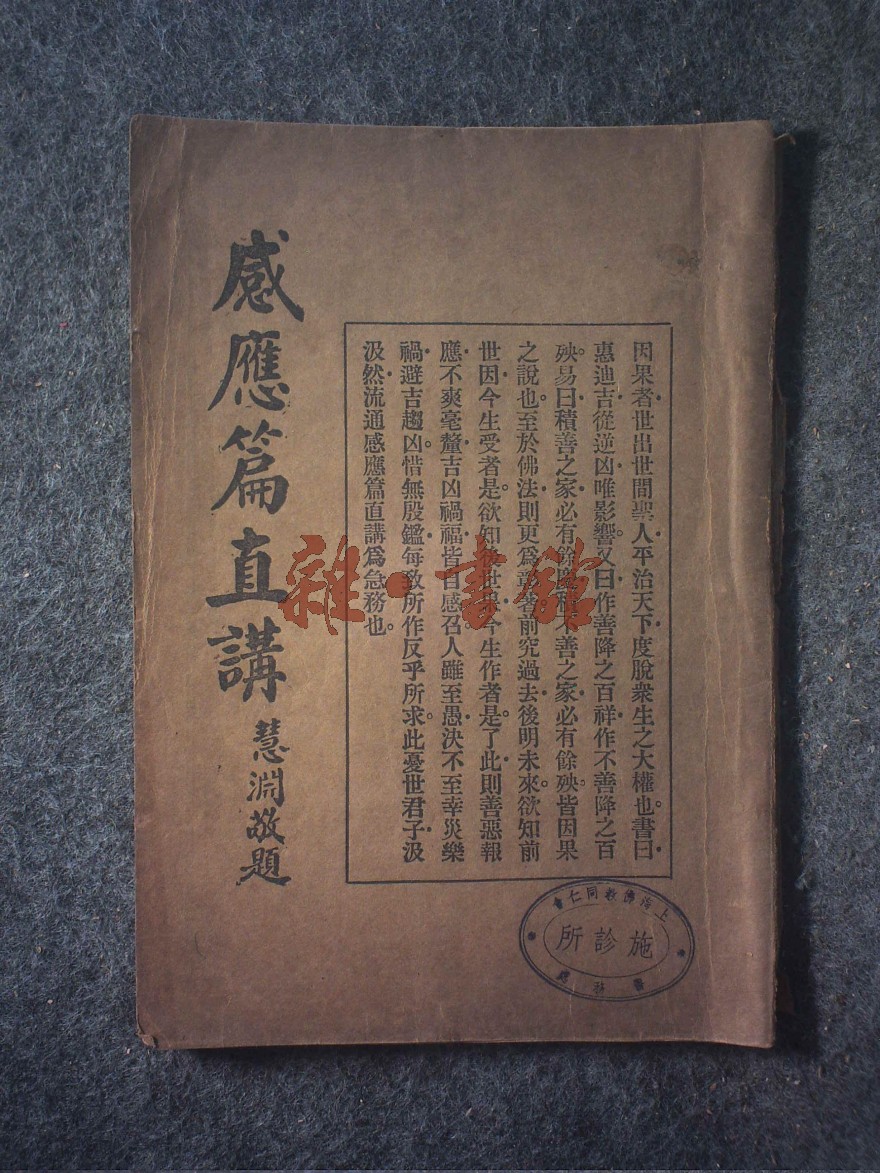 因果者世出世間聖人平治天下度脫衆生之大權也。書曰
惠迪吉從逆凶唯影響。又曰作善降之百祥作不善降之百
殃。易曰積善之家必有餘慶積不善之家必有餘殃。皆因果
之說也。至於佛法則更爲彰著前究過去後明未來。欲知前
世因今生受者是。欲知後世果今生作者是。了此則善惡報
應不爽毫釐吉凶禍福皆自感召。人雖至愚決不至幸災樂
禍避吉趨凶。惜無殷鑑每致所作反乎所求。此憂世君子汲
汲然流通感應篇直講爲急務也。
感應篇直講
慧淵敬題
上海佛教同仁會
施診所
雜·書館